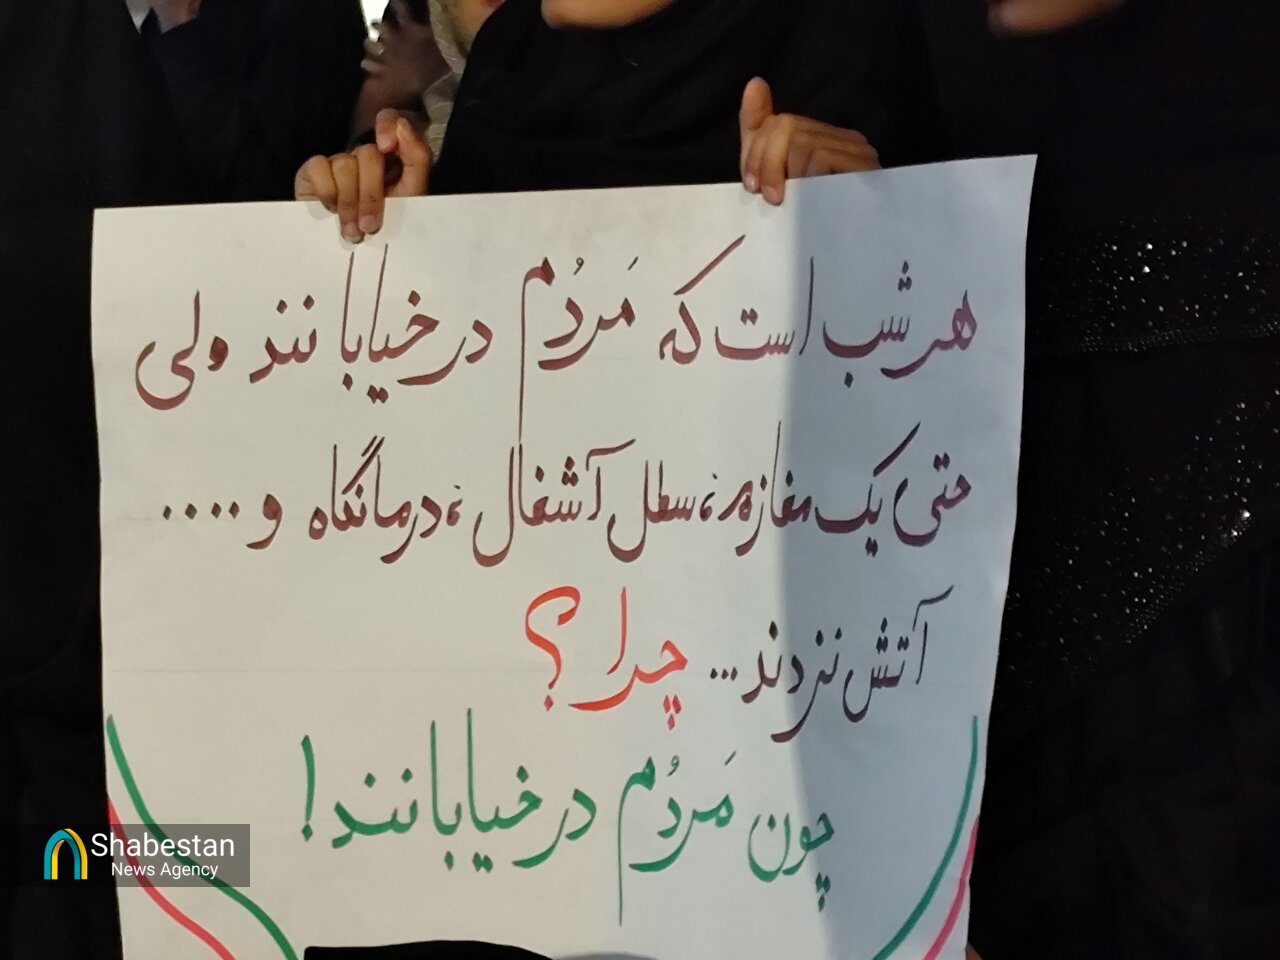 هر شب است که مَردُم در خیابانند ولی
حتی یک مغازه، سطل آشغال، درمانگاه و....
آتش نزدند... چرا؟
چون مَردُم در خیابانند!
Shabestan
News Agency